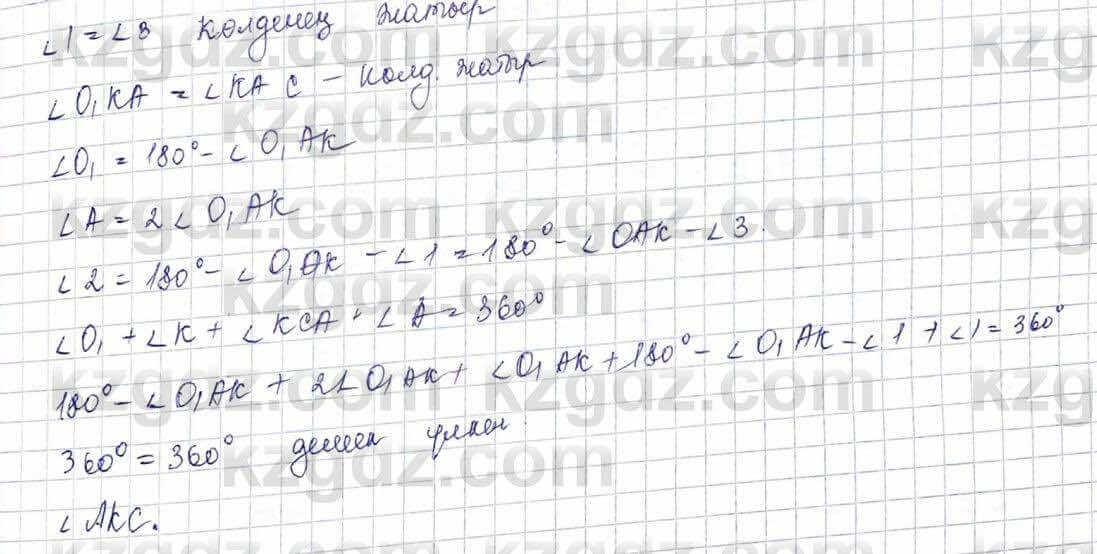 ∠1 = ∠3 Көлденең жатыр
∠O₁KA = ∠KAC – Колд. жатыр
∠O₁ = 180° – ∠O₁AK
∠A = 2∠O₁AK
∠2 = 180° – ∠O₁AK – ∠1 = 180° – ∠OAK – ∠3.
∠O₁ + ∠K + ∠KCA + ∠A = 360°
180° – ∠O₁AK + 2∠O₁AK + ∠O₁AK + 180° – ∠O₁AK – ∠1 + ∠1 = 360°
360° = 360° демек үлкен
∠AKC.
kzgdz.com